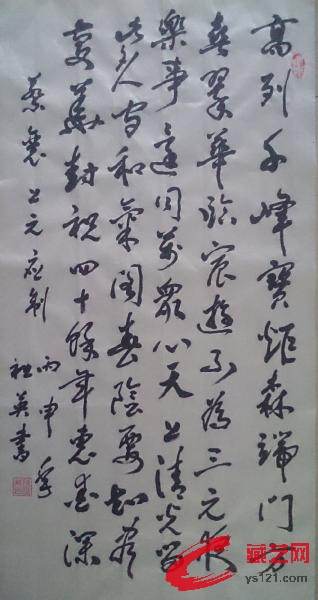 高列千峰寶炬森端門方
喜翠華臨宸遊不為三元夜
樂事還同萬衆心天上清光留
此夕人間和氣閣春陰要知盡
慶華封祝四十餘年惠愛深
蔡襄上元应制 丙申年
祖英書
藏艺网
ys121.com